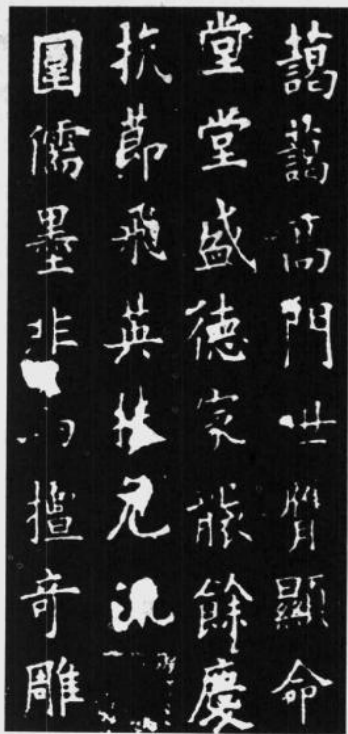 藹藹高門世胄顯命
堂堂盛德家餘慶
抗節飛英危
儒墨非擅奇雕